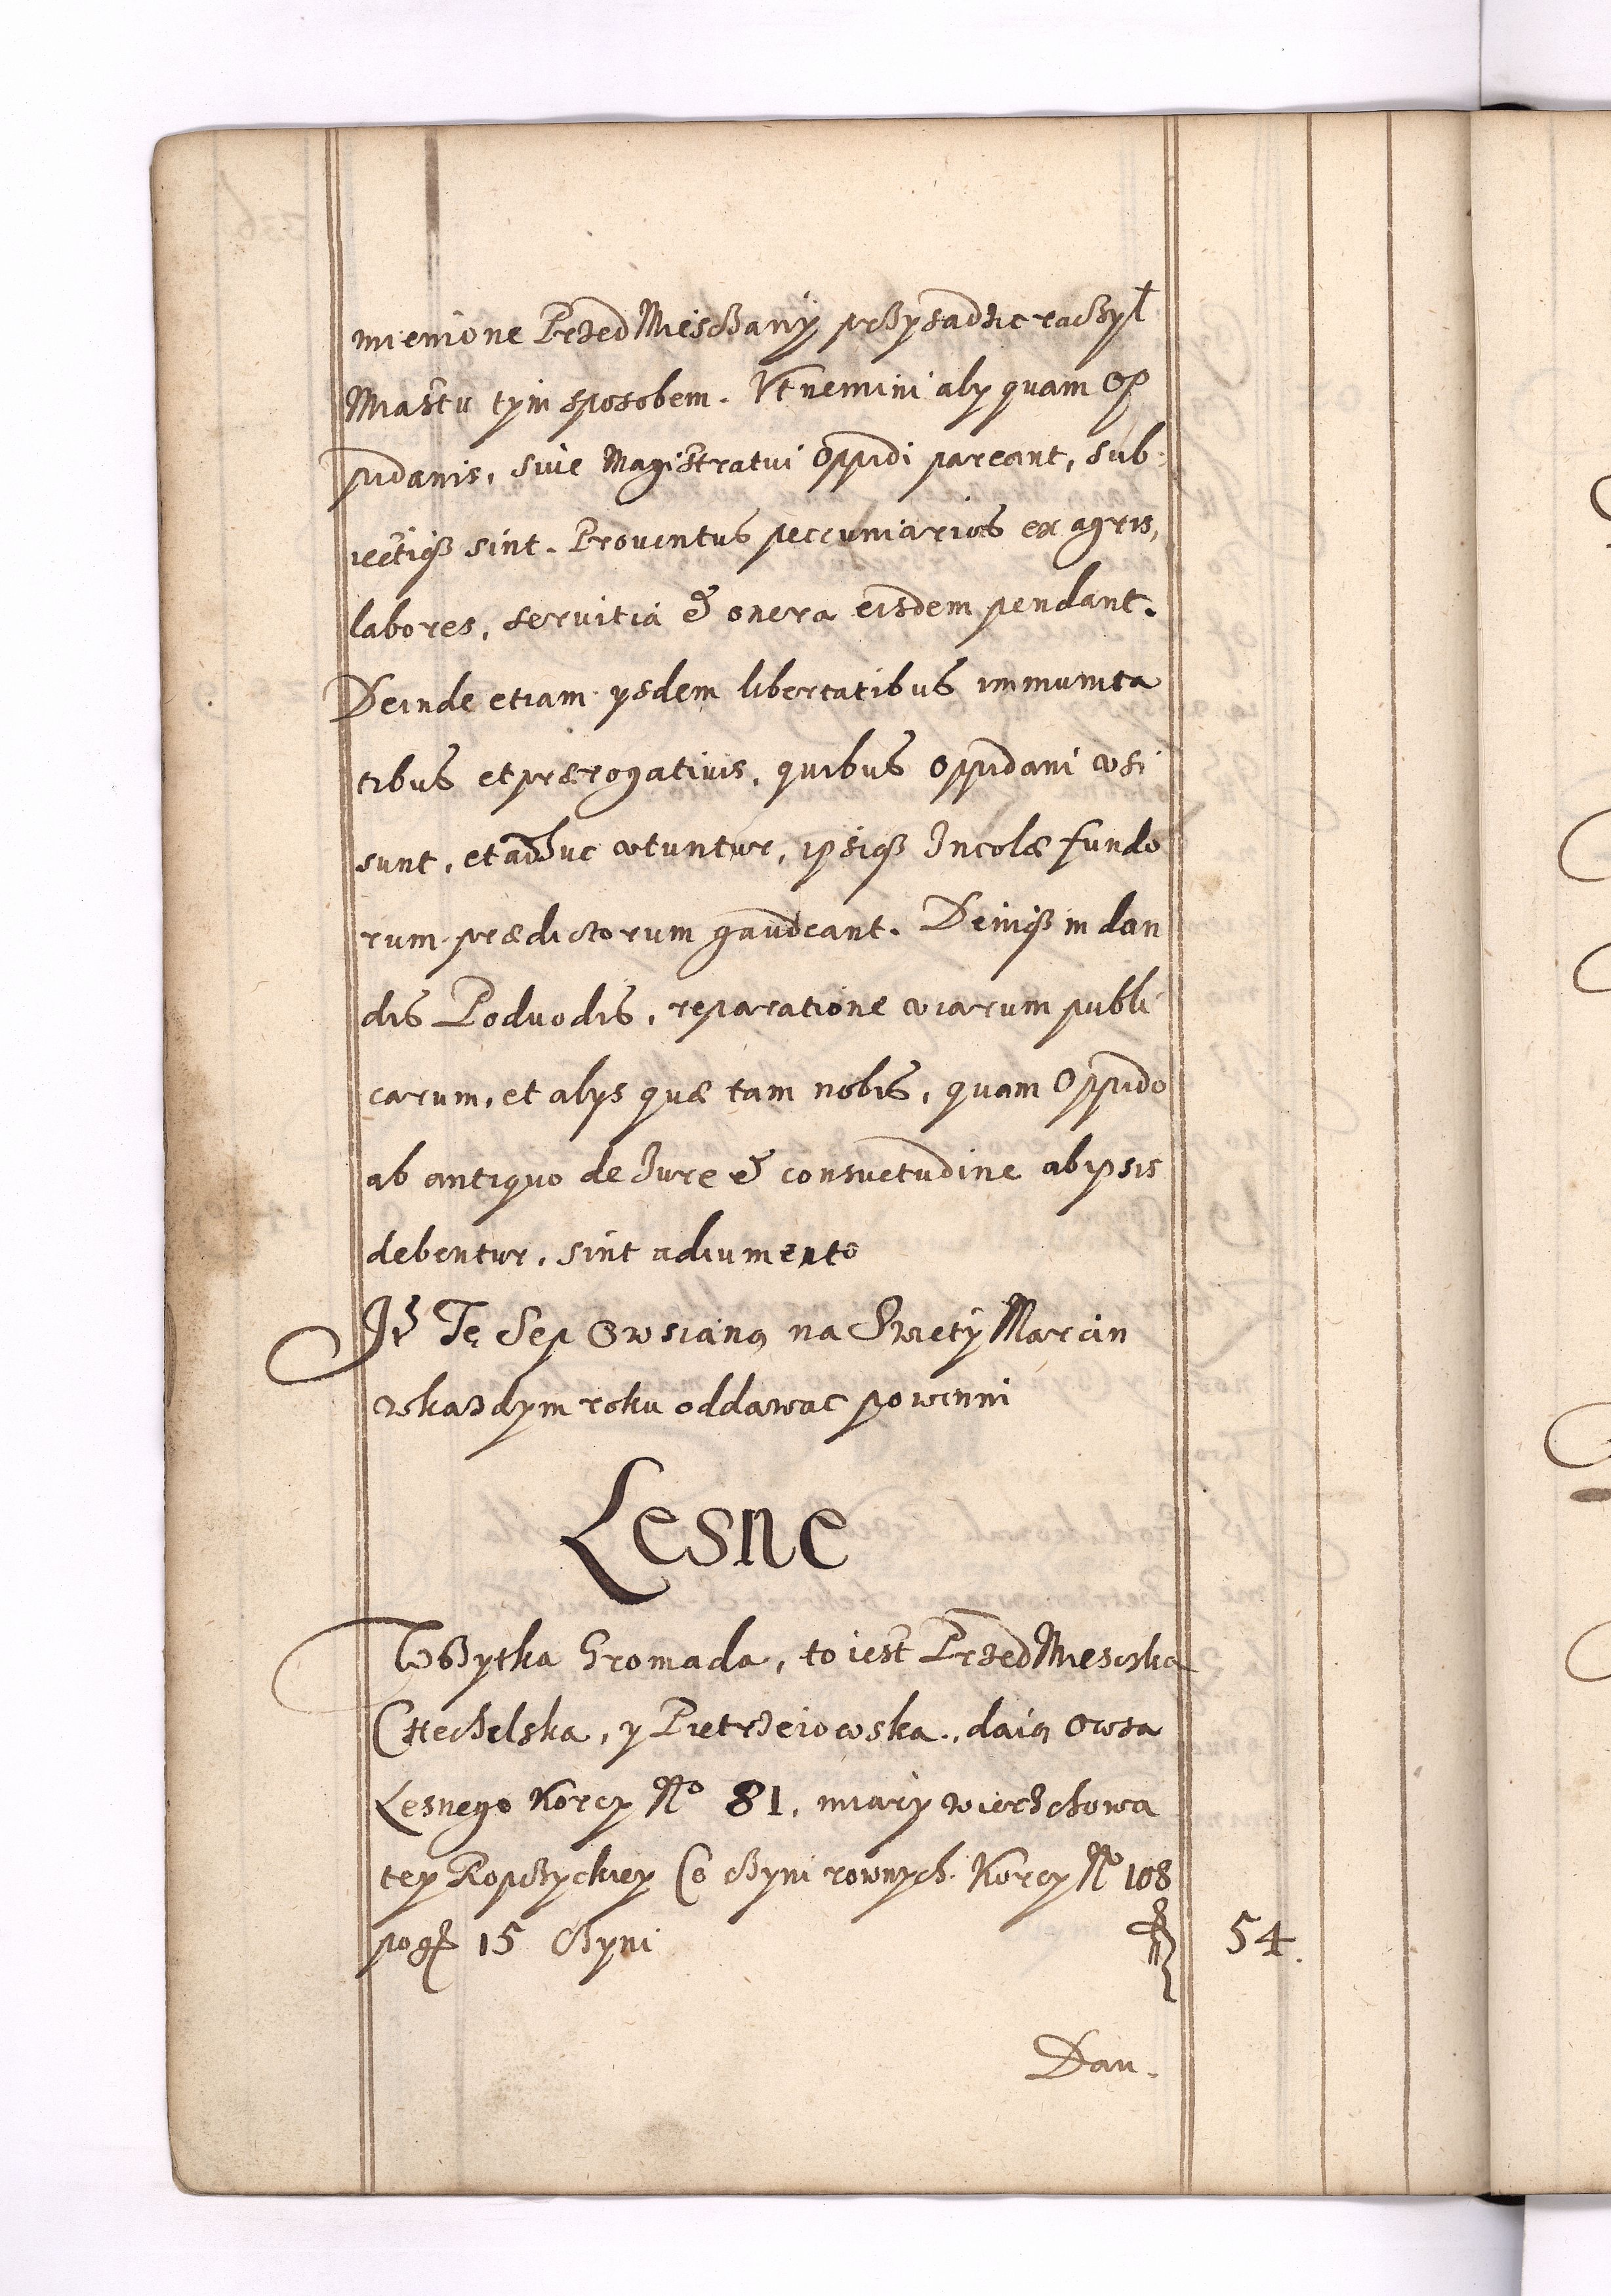 mienione PrzedMieszczany przysadzic raczył
Mastu tym sposobem. Vt nemini aly quam Op
pidanis, siue Magistratui Oppidi pareant, sub-
iectiq₃ sint. Prouentus peccuniarios ex agris,
labores, seruitia & onera eisdem pendant.
Deinde etiam ysdem libertatibus immunita
tibus et prærogatiuis, quibus Oppidani vsi
sunt, et adhuc vtuntur, ipsiq₃ Incolæ fundo
rum prædictorum gaudeant. Deniq₃ in dan
dis Podvodis, reparatione viarum publi
carum, et alys quæ tam nobis, quam Oppido
ab antiquo de Iure & consuetudine ab ipsis
debentur, sint adiumento
Tę Sep Owsianą na Swięty Marcin
wkazdym roku oddawac powinni
Lesne
Wszytka Gromada, to iest PrzedMiesczka
Czechelska, y Pietrzeiowska, daią Owsa
Lesnego Korcy No 81, miary wierzchowa
tey Ropczyckiey Co czyni rownych Korcy No 108
po g 15 czyni
54.
Dan.